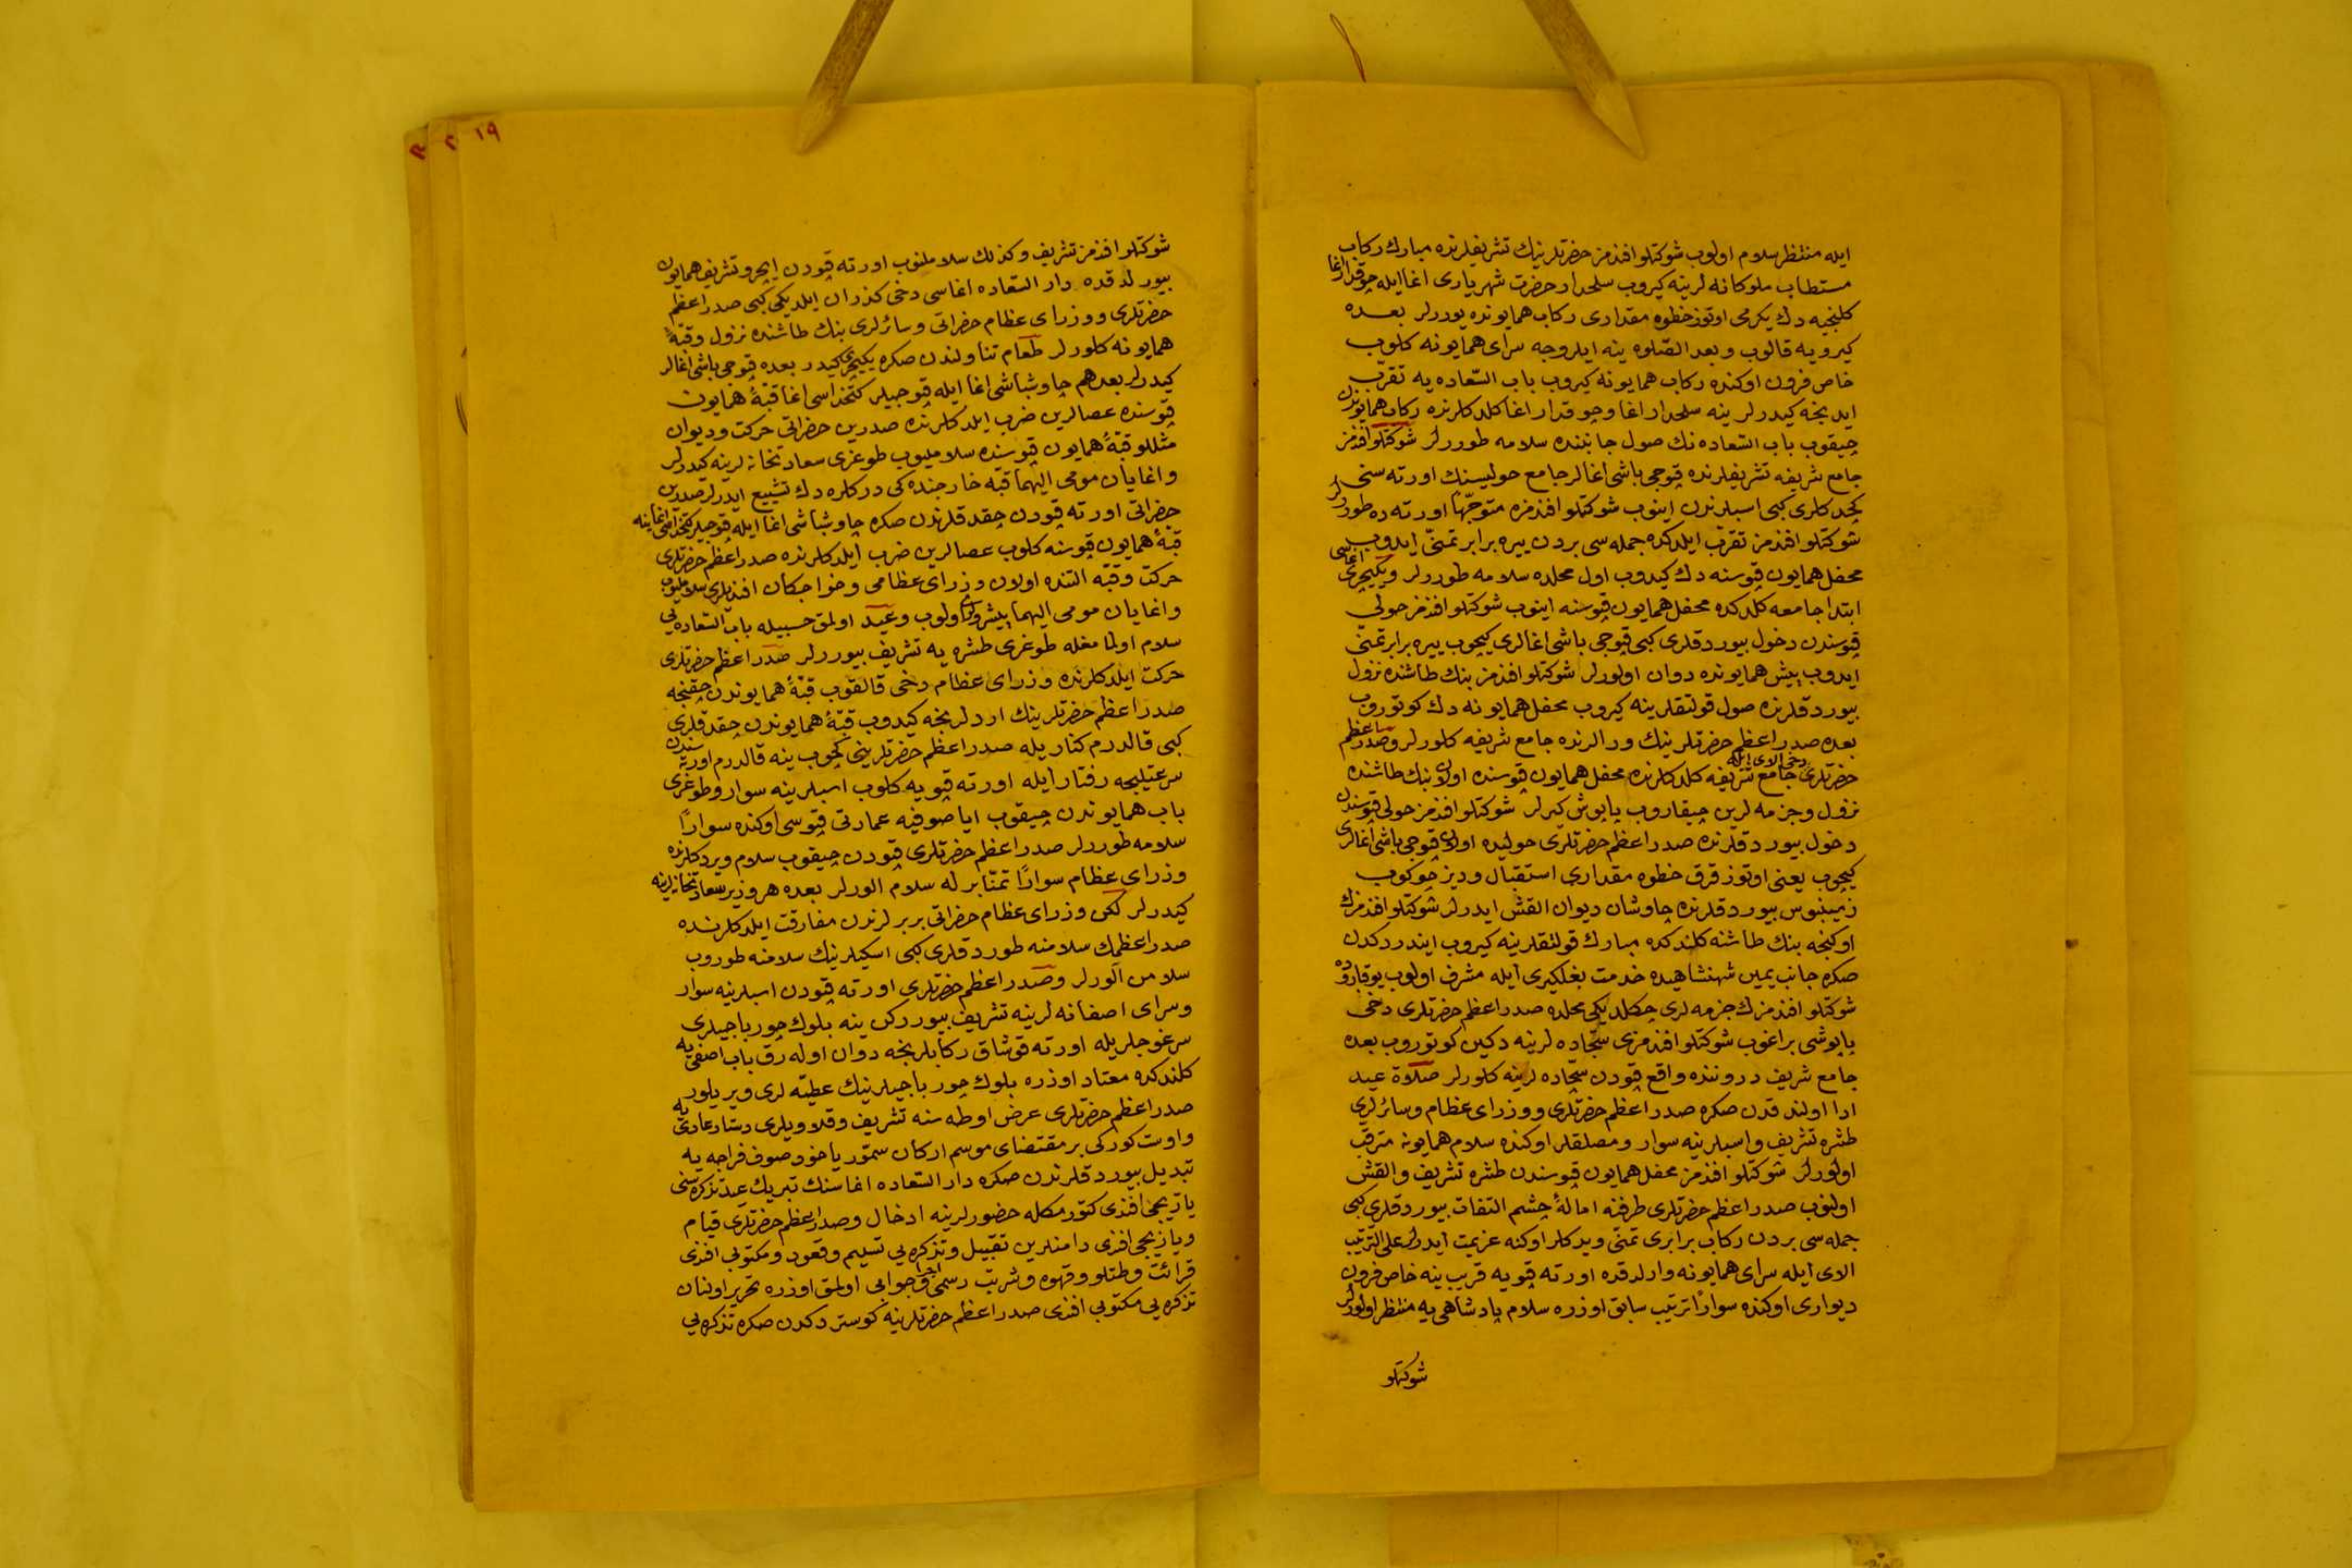 ايله منتظر سلام اولوب شوكتلو افندمز حضرتلرينك تشريفلرنده مبارك ركاب
مستطاب ملوكانه لرينه كيروب سلحدار حضرت شهرياری اغا ايله چوقدار اغا
كلنجيه دك يكرمی اوتوز خطوه مقداری ركاب همايونده يوررلر بعده
كيرويه قالوب وبعد الصلوه ينه ايلروجه سرای همايونه كلوب
خاص فرون اوكنده ركاب همايونه كيروب باب السّعاده يه تقرّب
ايدنجه كيدرلر ينه سلحدار اغا وچوقدار اغا كلدكلرنده ركاب همايوندن
چيقوب باب السّعاده نك صول جانبنده سلامه طوررلر شوكتلو افندمز
جامع شريفه تشريفلرنده قپوجی باشی اغالر جامع حوليسنك اورته سنی
كچدكلری كبی اسبلرندن اينوب شوكتلو افندمزه متوجّهًا اورته ده طوررلر
شوكتلو افندمز تقرّب ايلدكده جمله سی بردن ييره برابر تمنّی ايدوب
محفل همايون قپوسنه دك كيدوب اول محلده سلامه طوررلر ويكيچری اغاسی
ابتدا جامعه كلدكده محفل همايون قپوسنه اينوب شوكتلو افندمز حولی
قپوسندن دخول بيوردقلری كبی قپوجی باشی اغالری كچوب ييره برابر تمنّی
ايدوب پيش همايونده دوان اولورلر شوكتلو افندمز بنك طاشنده نزول
بيوردقلرنده صول قولتقلرينه كيروب محفل همايونه دك كوتوروب
بعده صدر اعظم حضرتلرينك ورالرنده جامع شريفه كلورلر وصدر اعظم
حضرتلری دخی الای ايله جامع شريفه كلدكلرنده محفل همايون قپوسنده اولان بنك طاشنده
نزول وجزمه لرين چيقاروب پاپوش كيرلر شوكتلو افندمز حولی قپوسندن
دخول بيوردقلرنده صدر اعظم حضرتلری حوليده اولان قپوجی باشی اغالری
كچوب يعنی اوتوز قرق خطوه مقداری استقبال وديز چوكوب
زمينبوس بيوردقلرنده چاوشان ديوان القش ايدرلر شوكتلو افندمزك
اوكنجه بنك طاشنه كلندكده مبارك قولتقلرينه كيروب ايندردكدن
صكره جانب يمين شهنشاهيده خدمت بغلكيری ايله مشرف اولوب يوقاروده
شوكتلو افندمزك جزمه لری چكلديكی محلده صدر اعظم حضرتلری دخی
پاپوشی براغوب شوكتلو افندمزی سجّاده لرينه دكين كوتوروب بعده
جامع شريف دروننده واقع قپودن سجّاده لرينه كلورلر صلاة عيد
ادا اولندقدن صكره صدر اعظم حضرتلری ووزرای عظام وسائرلری
طشره تشريف واسبلرينه سوار ومصلقلر اوكنده سلام همايونه مترقّب
اولورلر شوكتلو افندمز محفل همايون قپوسندن طشره تشريف والقش
اولنوب صدر اعظم حضرتلری طرفنه امالهٔ چشم التفات بيوردقلری كبی
جمله سی بردن ركاب برابری تمنّی ويدكلر اوكنه عزيمت ايدرلر على التّرتيب
الای ايله سرای همايونه وارلدقده اورته قپويه قريب ينه خاص فرون
ديواری اوكنده سوارًا ترتيب سابق اوزره سلام پادشاهی يه منتظر اولورلر
شوكتلو
١٩
شوكتلو افندمز تشريف وكذلك سلاملنوب اورته قپودن ايچرو تشريف همايون
بيورلدقده دار السّعاده اغاسی دخی كذران ايلديكی كبی صدر اعظم
حضرتلری ووزرای عظام حضراتی وسائرلری بنك طاشنده نزول وقبّهٔ
همايونه كلورلر طعام تناولندن صكره يكيچری كيدر بعده قپوجی باشی اغالر
كيدرلر بعدهم چاوشباشی اغا ايله قپوجيلر كتخداسی اغا قبّهٔ همايون
قپوسنده عصالرين ضرب ايلدكلرنده صدرين حضراتی حركت وديوان
مثللو قبّهٔ همايون قپوسنده سلامليوب طوغری سعادتخانه لرينه كيدرلر
واغايان مومی اليهما قبّه خارجنده كی دركلره دك تشييع ايدرلر صدرين
حضراتی اورته قپودن چقدقلرندن صكره چاوشباشی اغا ايله قپوجيلر كتخداسی اغا ينه
قبّهٔ همايون قپوسنه كلوب عصالرين ضرب ايلدكلرنده صدر اعظم حضرتلری
حركت وقبّه التنده اولان وزرای عظامی وخواجكان افنديلری سلامليوب
واغايان مومی اليهما پيشرولری اولوب وعيد اولمق حسبيله باب السّعاده يی
سلام اولنمامغله طوغری طشره يه تشريف بيوررلر صدر اعظم حضرتلری
حركت ايلدكلرنده وزرای عظام دخی قالقوب قبّهٔ همايوندن چقنجه
صدر اعظم حضرتلرينك اردلرنجه كيدوب قبّهٔ همايوندن چقدقلری
كبی قالدرم كناريله صدر اعظم حضرتلرينی كچوب ينه قالدرم اورته سندن
سرعتليجه رفتار ايله اورته قپويه كلوب اسبلرينه سوار وطوغری
باب همايوندن چيقوب اياصوفيه عمارتی قپوسی اوكنده سوارًا
سلامه طوررلر صدر اعظم حضرتلری قپودن چيقوب سلام ويردكلرنده
وزرای عظام سوارًا تمنّا برله سلام الورلر بعده هر وزير سعادتخانه لرينه
كيدرلر لكن وزرای عظام حضراتی بربرلرندن مفارقت ايلدكلرنده
صدر اعظمك سلامنه طوردقلری كبی اسكيلرينك سلامنه طوروب
سلامن الورلر وصدر اعظم حضرتلری اورته قپودن اسبلرينه سوار
وسرای اصفانه لرينه تشريف بيوررلكن ينه بلوك چورباجيلری
سرغوجلريله اورته قوشاق ركابلرنجه دوان اوله رق باب اصفی يه
كلندكده معتاد اوزره بلوك چورباجيلرينك عطيّه لری ويريلور
صدر اعظم حضرتلری عرض اوطه سنه تشريف وقلاويلری دستار عادی يه
واوست كوركی بر مقتضای موسم اركان سمّور ياخود صوف فراجه يه
تبديل بيوردقلرندن صكره دار السّعاده اغاسنك تبريك عيد تذكره سنی
يازيجی افندی كتورمكله حضورلرينه ادخال وصدر اعظم حضرتلری قيام
ويازيجی افندی دامنلرين تقبيل وتذكره يی تسليم وقعود ومكتوبی افندی
قرائت وطتلو وقهوه وشربت رسمی اجرا وجوابی اولمق اوزره تحرير اولنان
تذكره يی مكتوبی افندی صدر اعظم حضرتلرينه كوستردكدن صكره تذكره يی